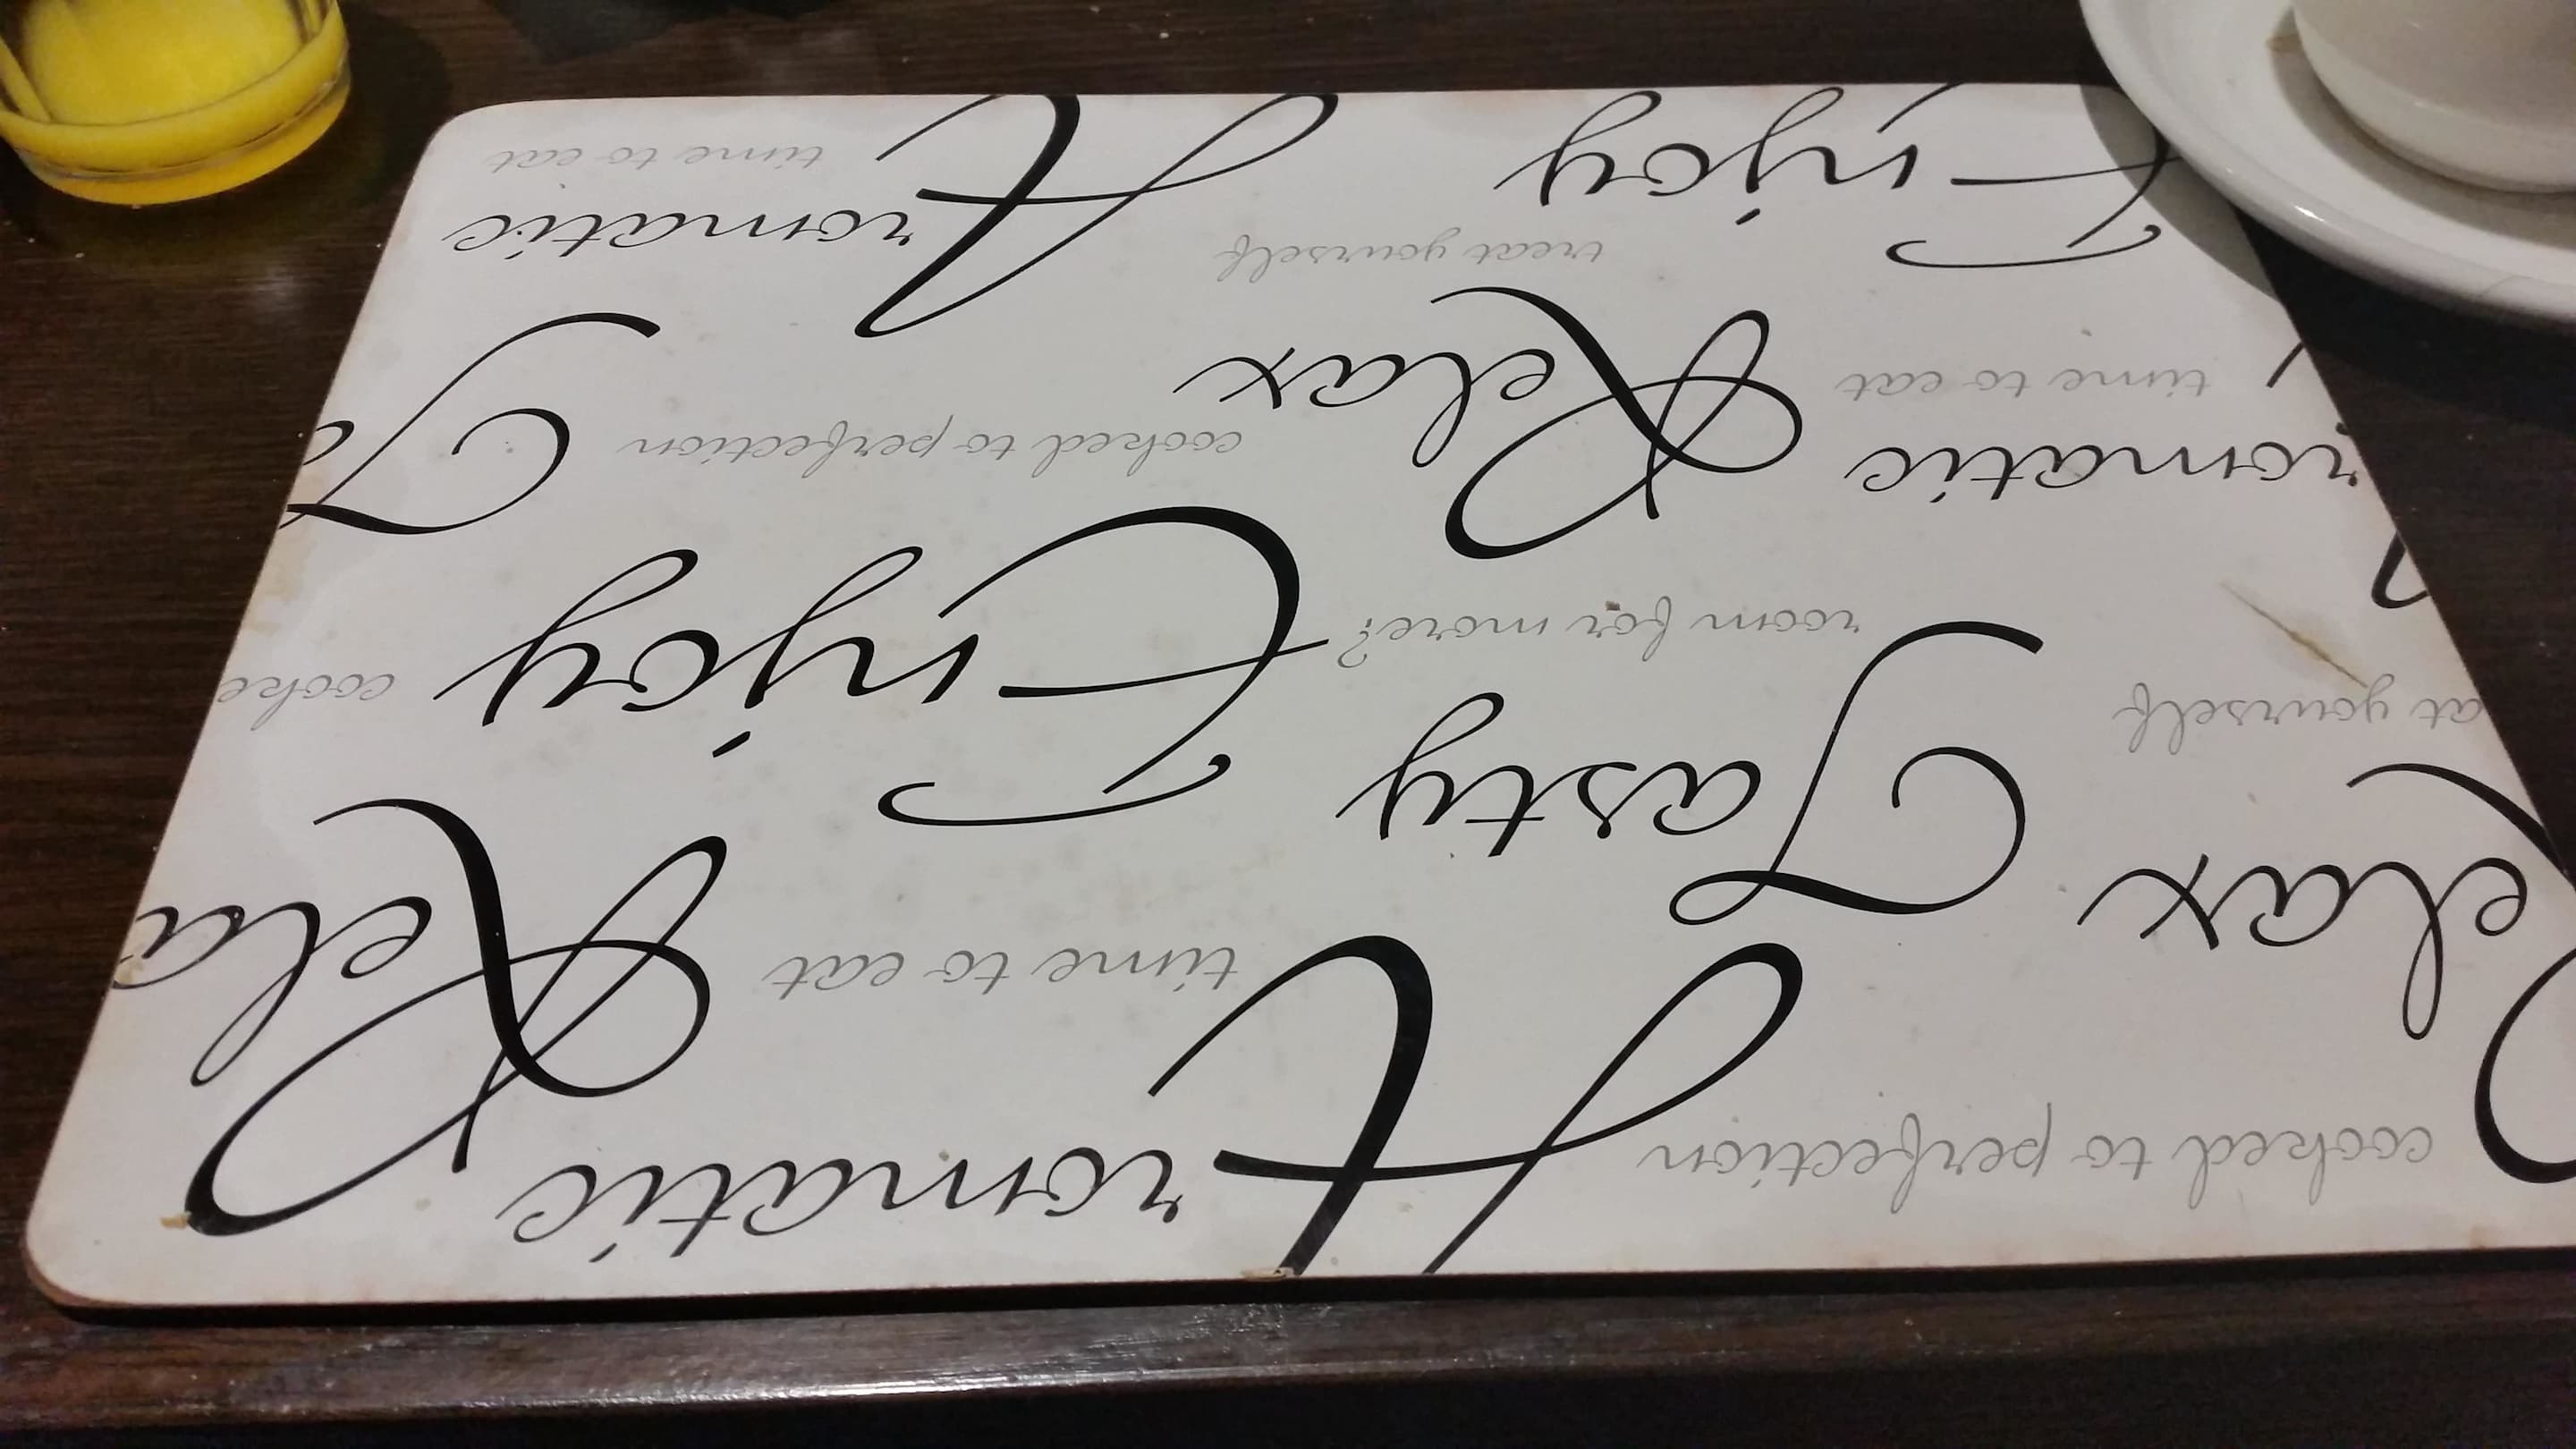 cooked to perfection
Aromatic
Relax
time to eat
Rela
at yourself
Tasty
Enjoy
cooke
room for more?
romatic
Relax
cooked to perfection
Ta
time to eat
treat yourself
Enjoy
Aromatic
time to eat